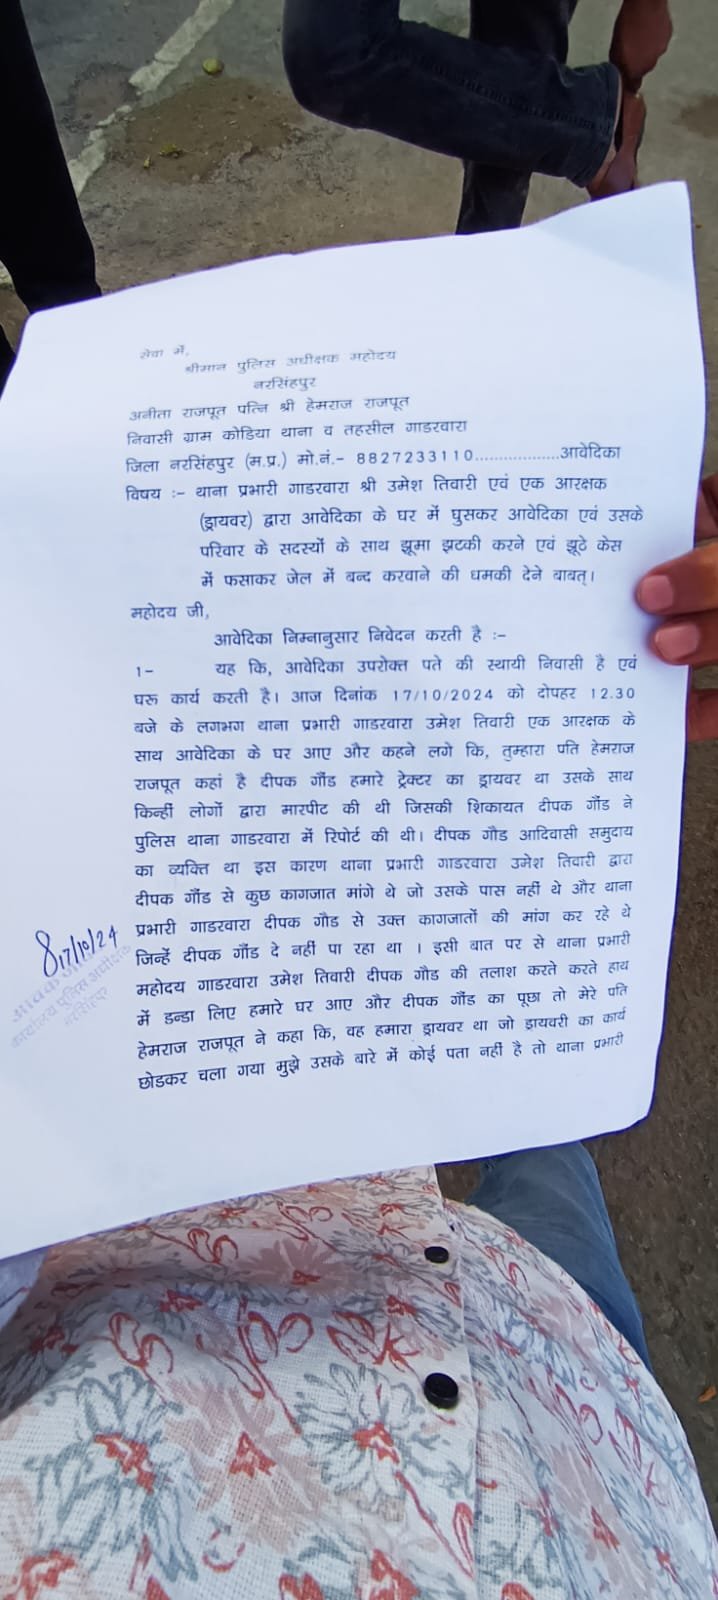 सेवा में,
श्रीमान पुलिस अधीक्षक महोदय
नरसिंहपुर
अनीता राजपूत पत्नि श्री हेमराज राजपूत
निवासी ग्राम कोडिया थाना व तहसील गाडरवारा
जिला नरसिंहपुर (म.प्र.) मो.नं.- 8827233110.................आवेदिका
विषय :- थाना प्रभारी गाडरवारा श्री उमेश तिवारी एवं एक आरक्षक
(ड्रायवर) द्वारा आवेदिका के घर में घुसकर आवेदिका एवं उसके
परिवार के सदस्यों के साथ झूमा झटकी करने एवं झूठे केस
में फसाकर जेल में बन्द करवाने की धमकी देने बाबत्।
महोदय जी,
आवेदिका निम्नानुसार निवेदन करती है :-
1- यह कि, आवेदिका उपरोक्त पते की स्थायी निवासी है एवं
घरू कार्य करती है। आज दिनांक 17/10/2024 को दोपहर 12.30
बजे के लगभग थाना प्रभारी गाडरवारा उमेश तिवारी एक आरक्षक के
साथ आवेदिका के घर आए और कहने लगे कि, तुम्हारा पति हेमराज
राजपूत कहां है दीपक गौंड हमारे ट्रेक्टर का ड्रायवर था उसके साथ
किन्हीं लोगों द्वारा मारपीट की थी जिसकी शिकायत दीपक गौंड ने
पुलिस थाना गाडरवारा में रिपोर्ट की थी। दीपक गौड आदिवासी समुदाय
का व्यक्ति था इस कारण थाना प्रभारी गाडरवारा उमेश तिवारी द्वारा
दीपक गौंड से कुछ कागजात मांगे थे जो उसके पास नहीं थे और थाना
प्रभारी गाडरवारा दीपक गौड से उक्त कागजातों की मांग कर रहे थे
जिन्हें दीपक गौंड दे नहीं पा रहा था । इसी बात पर से थाना प्रभारी
महोदय गाडरवारा उमेश तिवारी दीपक गौड की तलाश करते करते हाथ
में डन्डा लिए हमारे घर आए और दीपक गौंड का पूछा तो मेरे पति
हेमराज राजपूत ने कहा कि, वह हमारा ड्रायवर था जो ड्रायवरी का कार्य
छोडकर चला गया मुझे उसके बारे में कोई पता नहीं है तो थाना प्रभारी
17/10/24
कार्यालय पुलिस अधीक्षक
नरसिंहपुर